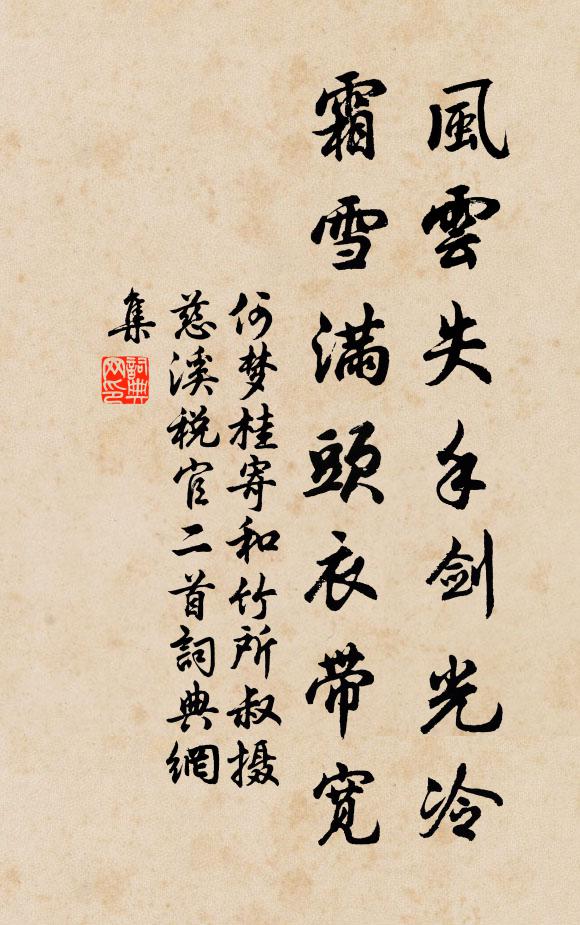 風雲失手劍光冷
霜雪滿頭衣帶寬
何梦桂寄和竹所叔摄
慈溪税官二首詞典網
集
詞典
网印